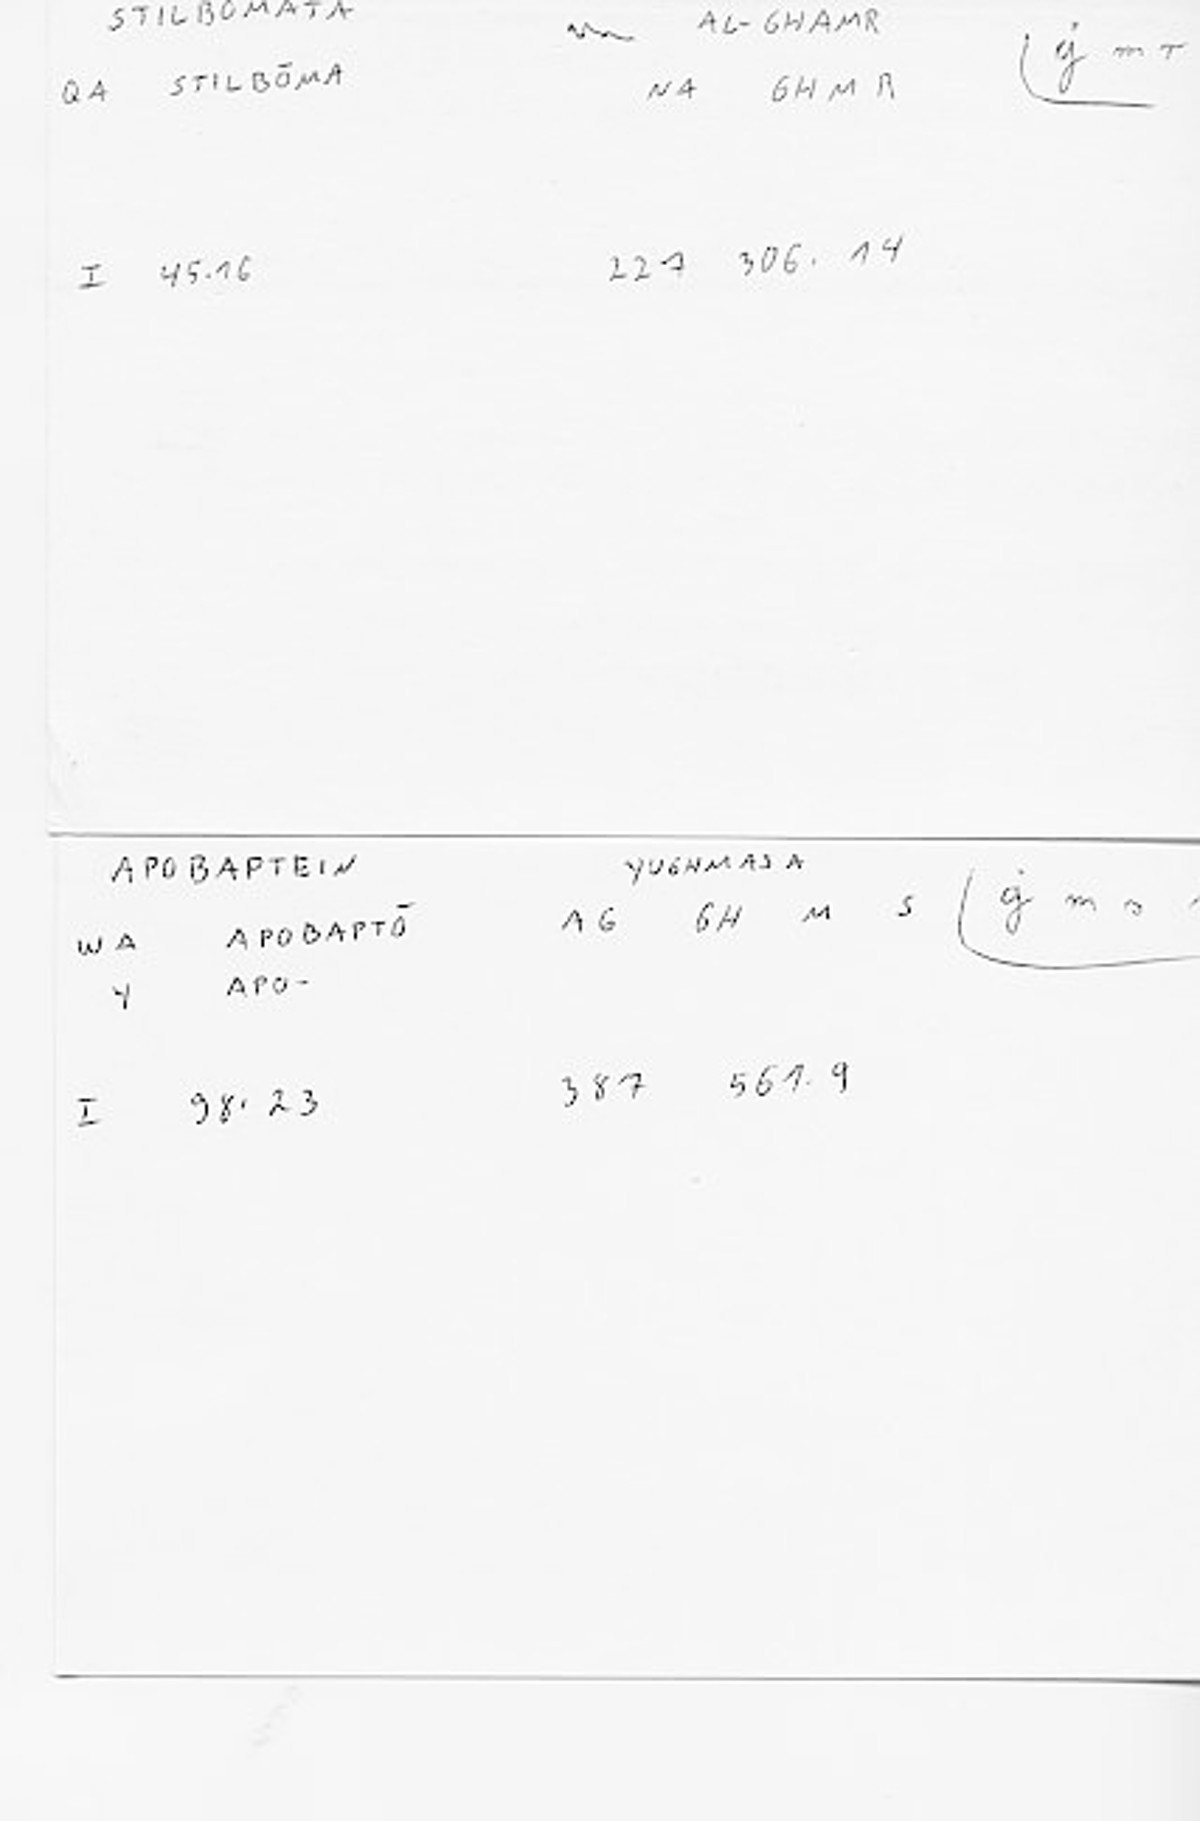 STILBŌMATA AL-GHAMR ġ m r
QA STILBŌMA NA GHMR
I 45.16 227 306.14
APOBAPTEIN YUGHMASA
WA APOBAPTŌ AG GH M S ġ m s
Y APO-
I 98.23 387 561.9